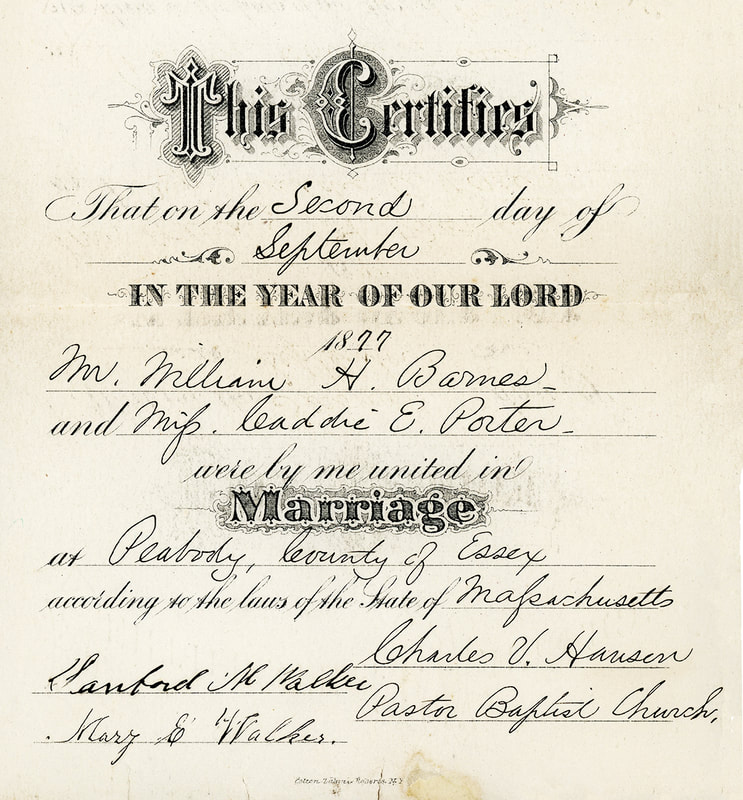 This Certifies
That on the Second day of
September
IN THE YEAR OF OUR LORD
1877
Mr. William H. Barnes
and Miss. Caddie E. Porter
were by me united in
Marriage
at Peabody, County of Essex
according to the laws of the State of Massachusetts
Charles V. Hansen
Sanford M Walker
Pastor Baptist Church,
Mary E Walker.